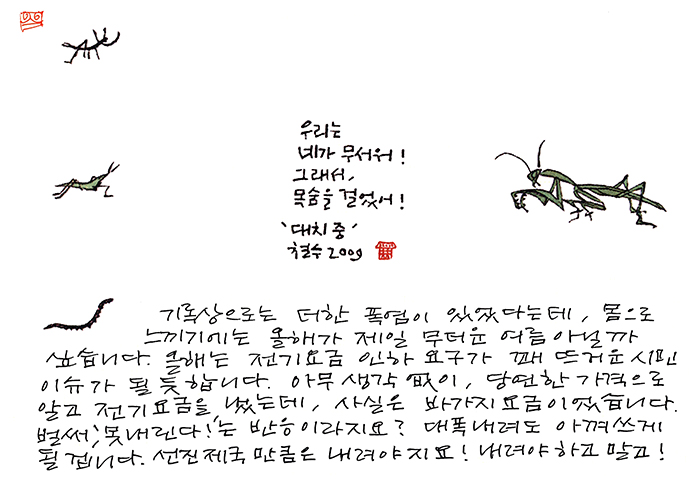 우리는
네가 무서워!
그래서,
목숨을 걸었어!
'대치 중'
철수 2009
기록상으로는 더한 폭염이 있었다는데, 몸으로
느끼기에는 올해가 제일 무더운 여름 아닐까
싶습니다. 올해는 전기요금 인하 요구가 꽤 뜨거운 시민
이슈가 될 듯합니다. 아무 생각 없이, 당연한 가격으로
알고 전기요금을 냈는데, 사실은 바가지요금이었습니다.
벌써, '못내린다!'는 반응이라지요? 대폭내려도 아껴쓰게
될 겁니다. 선진제국 만큼은 내려야지요! 내려야하고 말고!